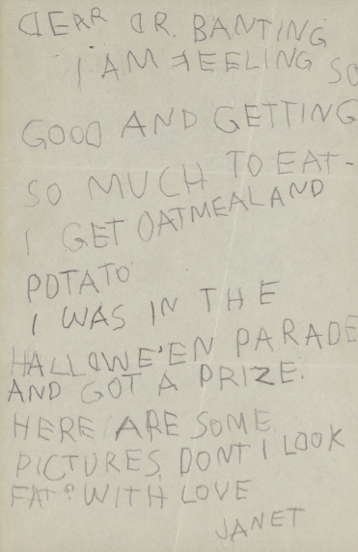 DEAR DR. BANTING
I AM FEELING SO
GOOD AND GETTING
SO MUCH TO EAT-
I GET OATMEAL AND
POTATO
I WAS IN THE
HALLOWE'EN PARADE
AND GOT A PRIZE.
HERE ARE SOME
PICTURES. DONT I LOOK
FAT? WITH LOVE
JANET